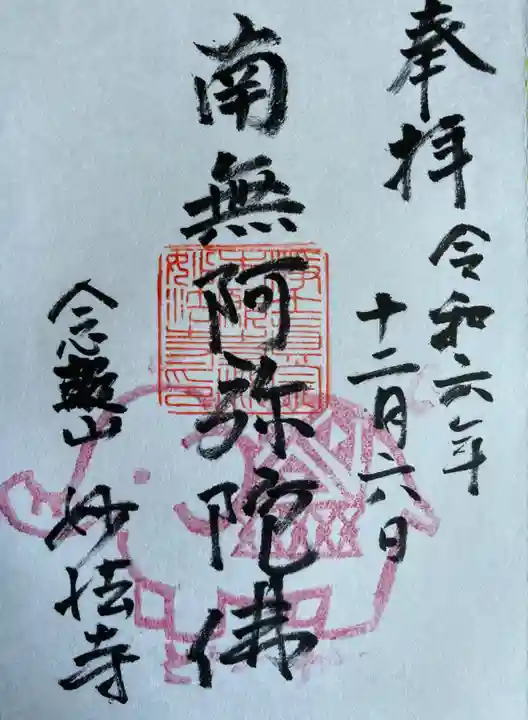 奉拝
令和六年
十二月六日
南無阿弥陀佛
念趣山 妙法寺